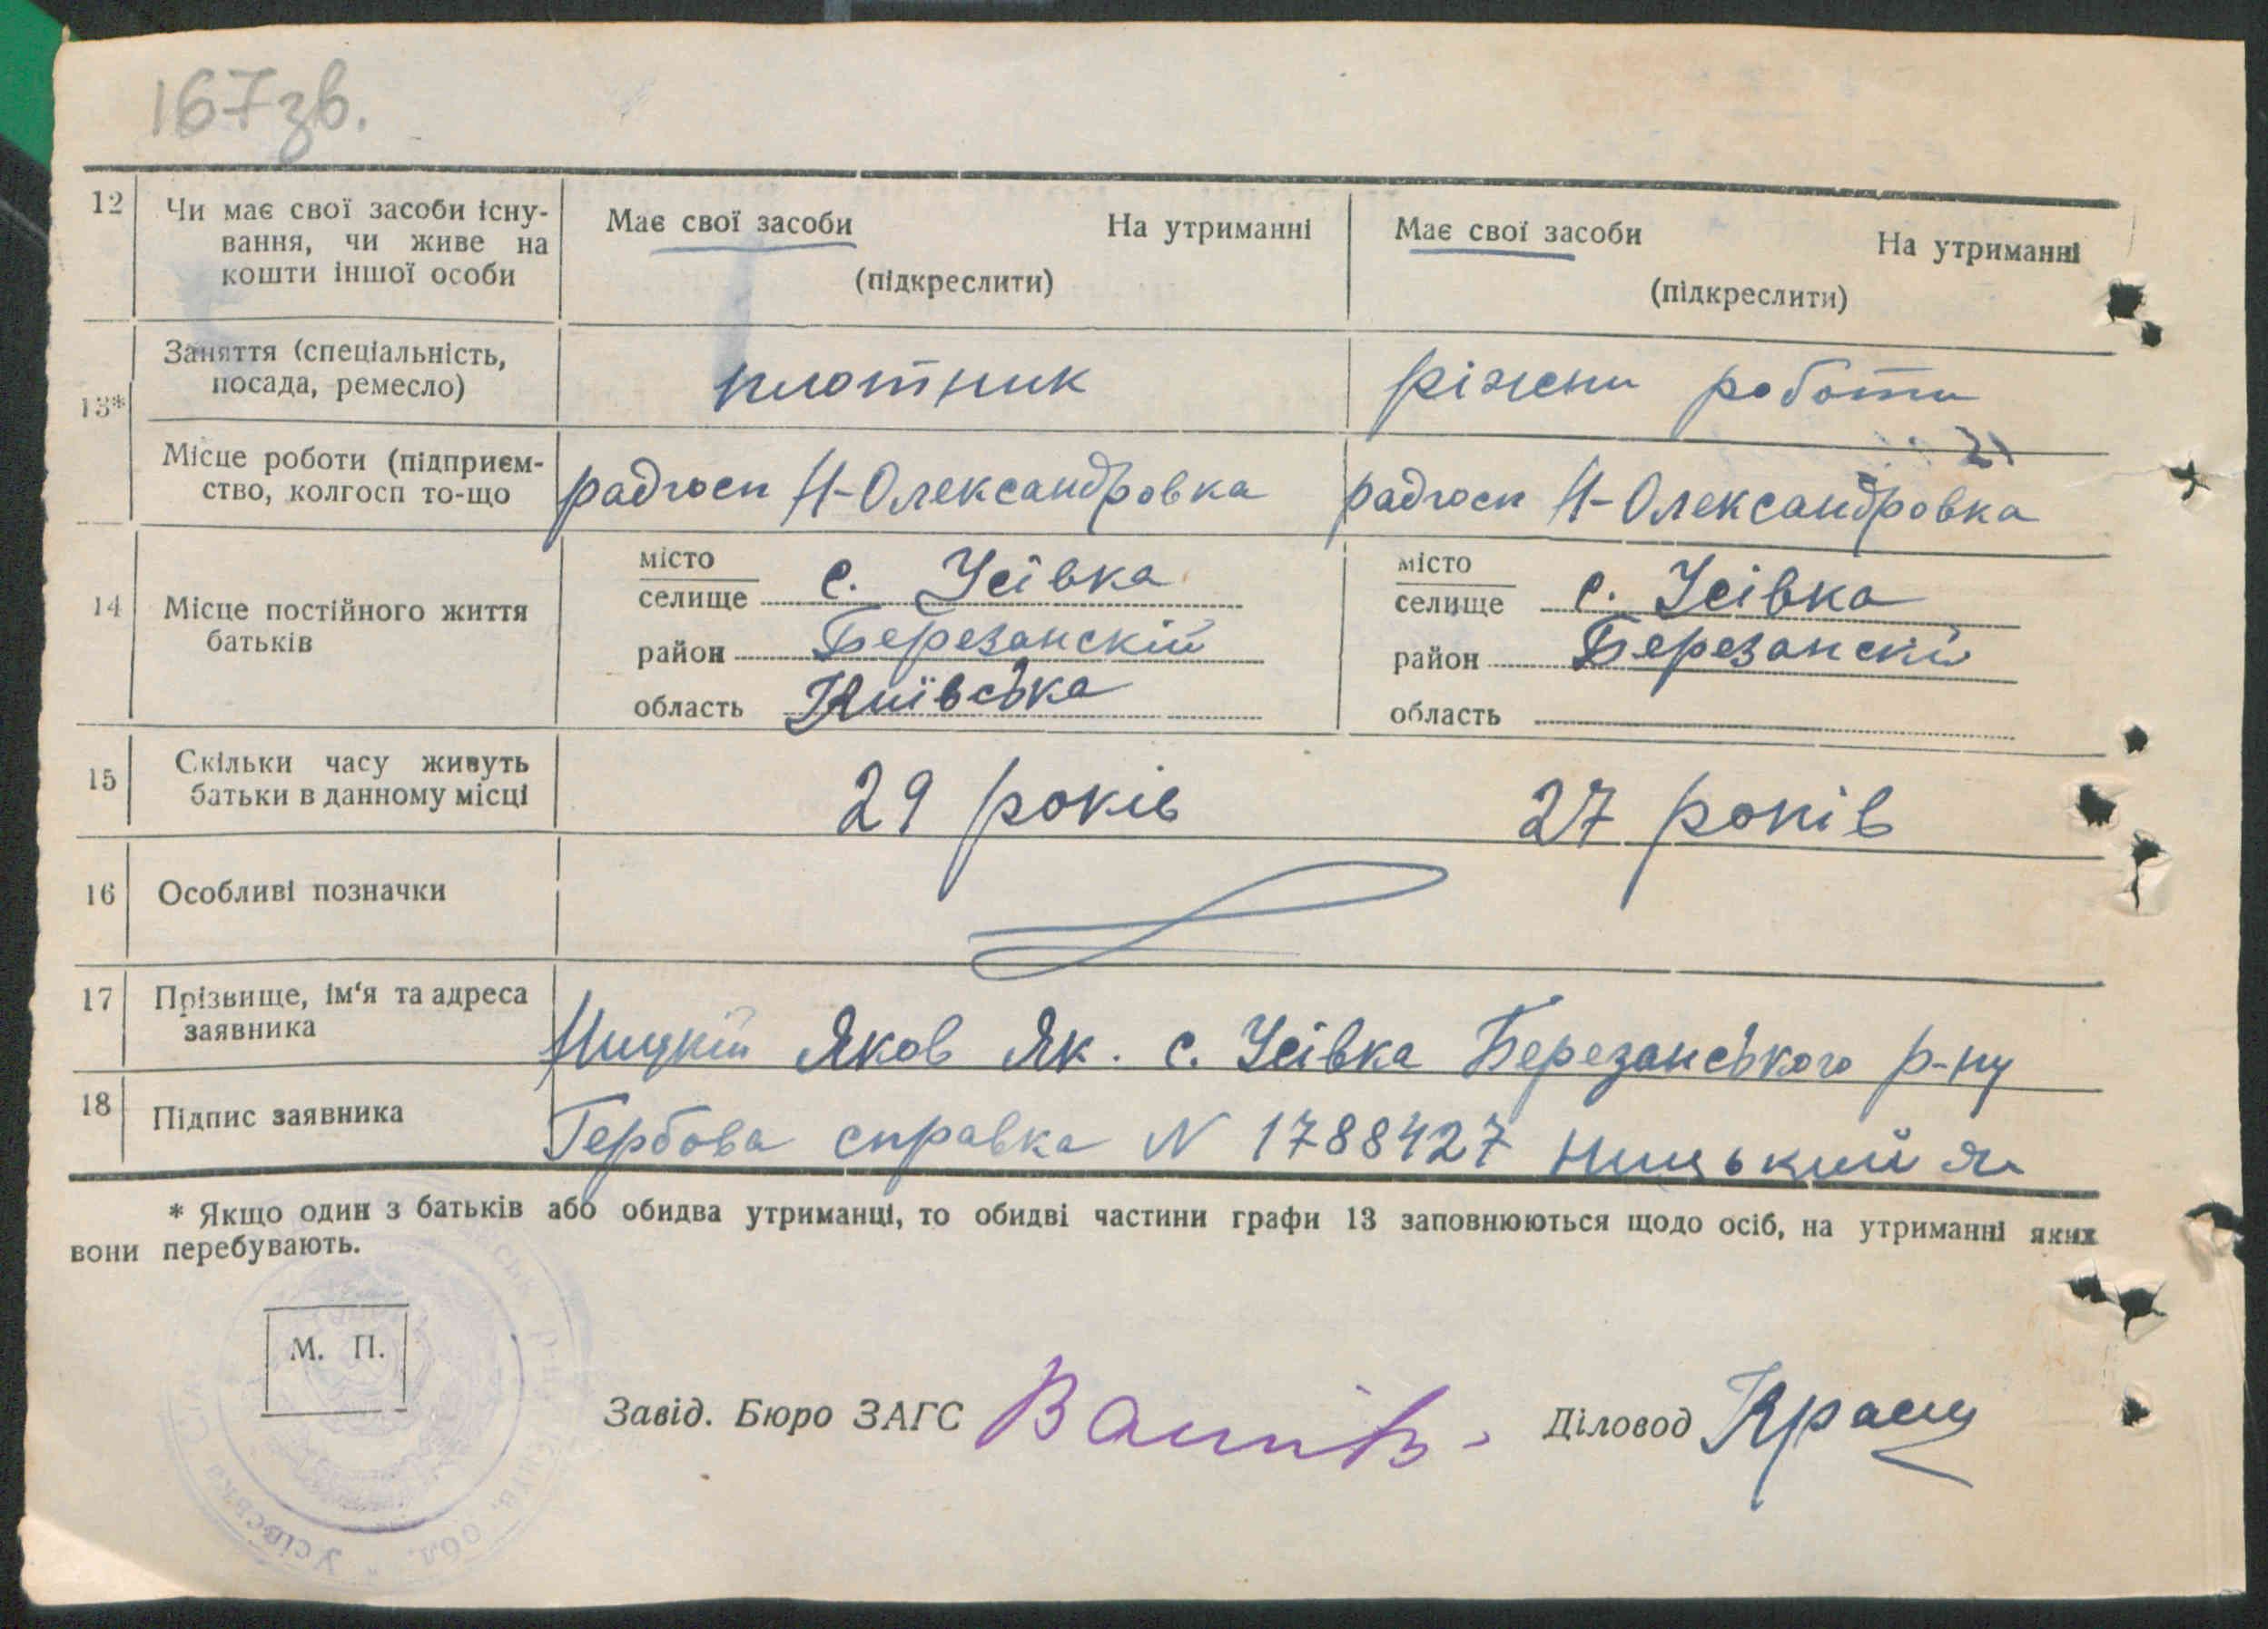 167зв.
12 Чи має свої засоби існу- Має свої засоби На утриманні Має свої засоби На утриманні
вання, чи живе на
кошти іншої особи (підкреслити) (підкреслити)
13* Заняття (спеціальність,
посада, ремесло) плотник ріжни роботи
Місце роботи (підприєм-
ство, колгосп то-що радгосп Н-Олександровка радгосп Н-Олександровка
14 Місце постійного життя
батьків
місто
селище с. Усівка
район Березанскій
область Київська
місто
селище с. Усівка
район Березанскій
область
15 Скільки часу живуть
батьки в данному місці 29 років 27 років
16 Особливі позначки
17 Прізвище, ім'я та адреса
заявника Ницкій Яков Як. с. Усівка Березанського р-ну
18 Підпис заявника Гербова справка N 1788427 Ницький Я
* Якщо один з батьків або обидва утриманці, то обидві частини графи 13 заповнюються щодо осіб, на утриманні яких
вони перебувають.
М. П.
Завід. Бюро ЗАГС Діловод
Усівська обл.